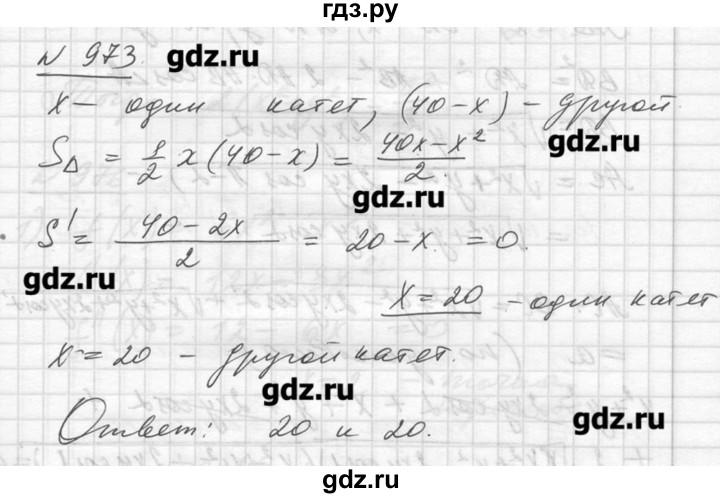 гдз.ру
N 973. gdz.ru
x — один катет, (40-x) - другой.
S△ = 1/2 x(40-x) = (40x-x²)/2. gdz.ru
gdz.ru
S' = (40-2x)/2 = 20-x. = 0.
gdz.ru
x=20 - один катет
x = 20 - другой катет.
gdz.ru
Ответ: 20 и 20. gdz.ru
gdz.ru